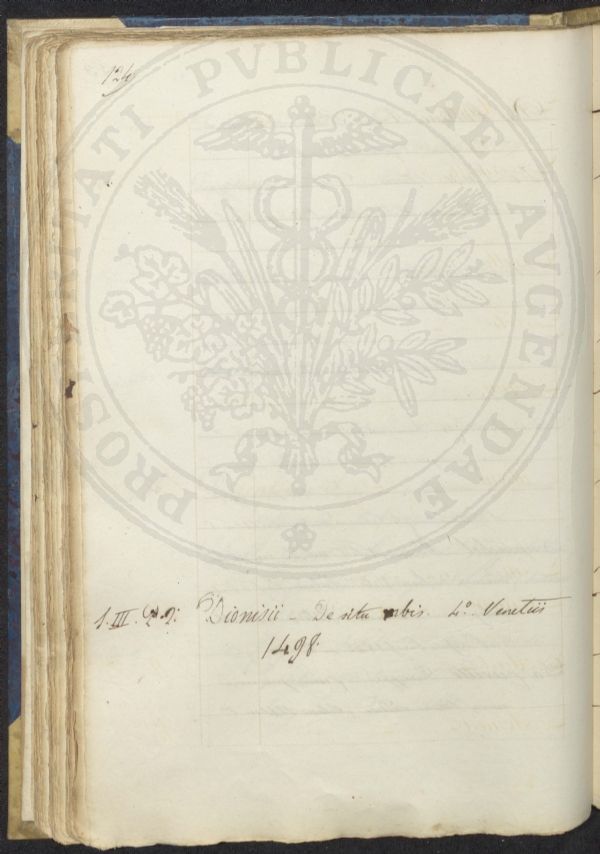 124
PROSPERITATI PVBLICAE AVGENDAE
1. III. Dionisii - De situ orbis. 4º. Venetiis
1498.